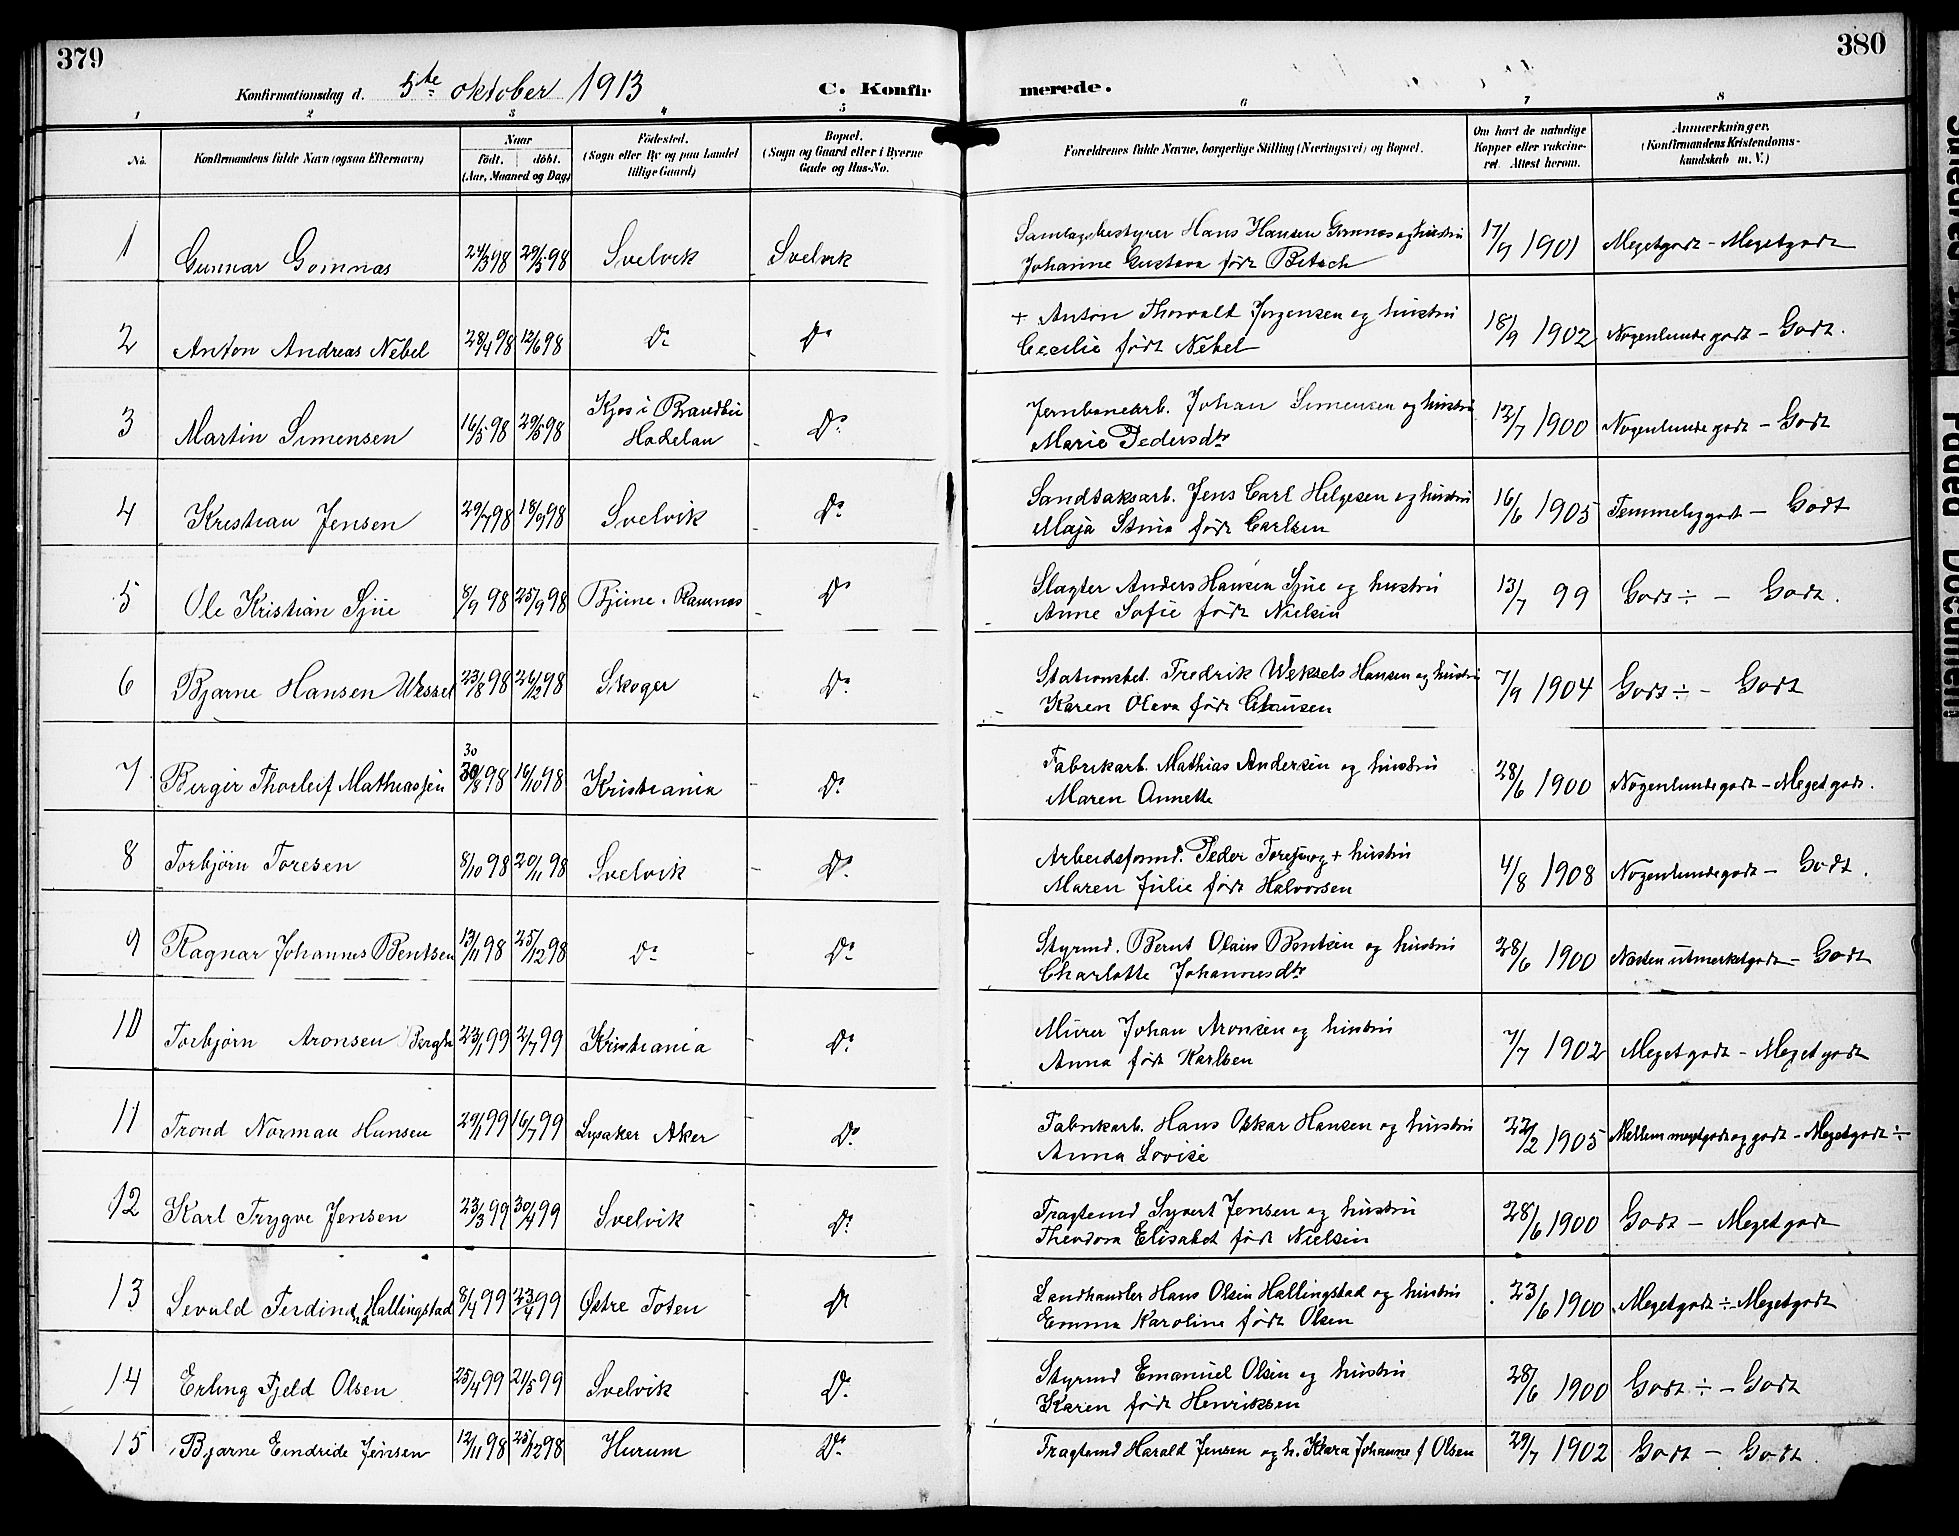 379
380
Konfirmationsdag d. 5te oktober 1913
C. Konfirmerede.
1 2 3 4 5 6 7 8
No. Konfirmandens fulde Navn (ogsaa Efternavn) Naar født, døbt. (Aar, Maaned og Dag) Fødested. (Sogn eller By og paa Landet tillige Gaard) Bopæl. (Sogn og Gaard eller i Byerne Gade og Hus-No. Forældrenes fulde Navne, borgerlige Stilling (Næringsvei) og Bopæl. Om havt de naturlige Kopper eller vakcineret. Attest herom. Anmærkninger. (Konfirmandens Kristendomskundskab m. V.)
1 Gunnar Gomnæs 24/3 98 29/5 98 Svelvik Svelvik Samlagsbestyrer Hans Hansen Gomnæs og hustru 17/9 1901 Megetgodt - Megetgodt
Johanne Gustava født Betsch
2 Anton Andreas Nebel 28/4 98 12/6 98 Do Do + Anton Thorvald Jørgensen og hustru 18/9 1902 Nogenlunde godt - Godt.
Cecilie født Nebel
3 Martin Simensen 16/5 98 29/5 98 Kjos i Brandbu Hadeland Do Jernbanearb. Johan Simensen og hustru 12/7 1900 Nogenlunde godt - Godt
Marie Pedersdtr
4 Kristian Jensen 29/7 98 18/9 98 Svelvik Do Sandtaksarb. Jens Carl Helgesen og hustru 16/6 1905 Temmeliggodt - Godt
Maja Stina født Carlsen
5 Ole Kristian Sjue 8/9 98 25/9 98 Bjune, Ramnæs Do Slagter Anders Hansen Sjue og hustru 13/7 99 Godt ÷ - Godt.
Anne Sofie født Nielsen
6 Bjarne Hansen Wessel 23/8 98 26/12 98 Skoger Do Stationsbet. Fredrik Weksels Hansen og hustru 7/9 1904 Godt ÷ - Godt
Karen Oleva født Clausen
7 Birger Thorleif Mathiassen 30/8 98 16/10 98 Kristiania Do Fabrikarb. Mathias Andersen og hustru 28/6 1900 Nogenlundegodt - Megetgodt.
Maren Annette
8 Torbjørn Toresen 8/10 98 20/11 98 Svelvik Do Arbeidsformd. Peder Toresen og + hustru 4/8 1908 Nogenlundegodt - Godt.
Maren Julie født Halvorsen
9 Ragnar Johannes Bentsen 13/11 98 25/12 98 Do Do Styrmd. Bernt Olaus Bentsen og hustru 28/6 1900 Næsten utmerketgodt - Godt
Charlotte Johannesdtr
10 Torbjørn Aronsen 23/1 99 2/7 99 Kristiania Do Murer Johan Aronsen og hustru 7/7 1902 Meget godt - Meget godt
Anna født Karlsen
11 Trond Norman Hansen 29/1 99 16/7 99 Lysaker Aker Do Fabrikarb. Hans Oskar Hansen og hustru 22/2 1905 Mellem megetgodt og godt - Megetgodt ÷
Anna Lovise
12 Karl Trygve Jensen 23/3 99 30/4 99 Svelvik Do Fragtemd Syvert Jensen og hustru 28/6 1900 Godt - Megetgodt
Theodora Elisabet født Nielsen
13 Sevald Ferdinand Hallingstad 8/4 99 23/4 99 Østre Toten Do Landhandler Hans Olsen Hallingstad og hustru 23/6 1900 Megetgodt ÷ Megetgodt
Emma Karoline født Olsen
14 Erling Fjeld Olsen 25/4 99 21/5 99 Svelvik Do Styrmd Emanuel Olsen og hustru 28/6 1900 Godt ÷ - Godt
Karen født Henriksen
15 Bjarne Eindride Jensen 12/11 98 25/12 98 Hurum Do Fragtemd Harald Jensen og h. Klara Johanne f Olsen 29/7 1902 Godt - Godt.